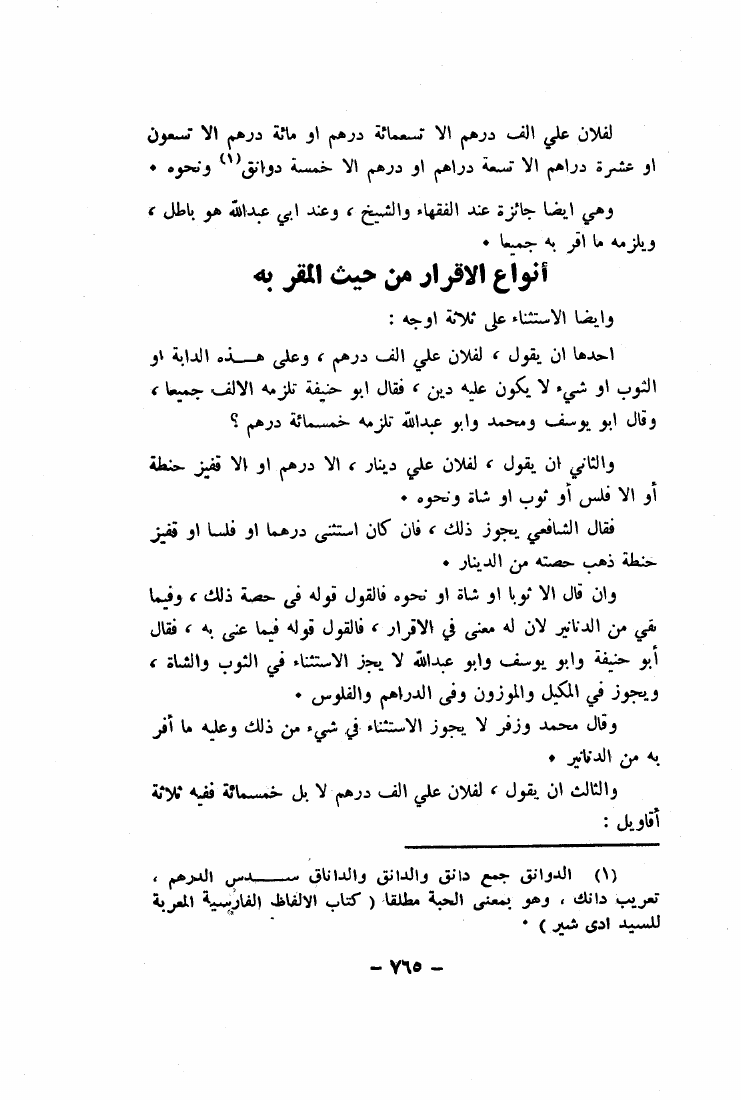 لفلان علي الف درهم الا تسعمائة درهم او مائة درهم الا تسعون
او عشرة دراهم الا تسعة دراهم او درهم الا خمسة دوانق(١) ونحوه ٠
وهي ايضا جائزة عند الفقهاء والشيخ ، وعند ابي عبدالله هو باطل ،
ويلزمه ما اقر به جميعا ٠
أنواع الاقرار من حيث المقر به
وايضا الاستثناء على ثلاثة اوجه :
احدها ان يقول ، لفلان علي الف درهم ، وعلى هـــذه الدابة او
الثوب او شيء لا يكون عليه دين ، فقال ابو حنيفة تلزمه الالف جميعا ،
وقال ابو يوسف ومحمد وابو عبدالله تلزمه خمسمائة درهم ؟
والثاني ان يقول ، لفلان علي دينار ، الا درهم او الا قفيز حنطة
أو الا فلس أو ثوب او شاة ونحوه ٠
فقال الشافعي يجوز ذلك ، فان كان استثنى درهما او فلسا او قفيز
حنطة ذهب حصته من الدينار ٠
وان قال الا ثوبا او شاة او نحوه فالقول قوله فى حصة ذلك ، وفيما
بقي من الدنانير لان له معنى في الاقرار ، فالقول قوله فيما عنى به ، فقال
أبو حنيفة وابو يوسف وابو عبدالله لا يجز الاستثناء في الثوب والشاة ،
ويجوز في المكيل والموزون وفى الدراهم والفلوس ٠
وقال محمد وزفر لا يجوز الاستثناء في شيء من ذلك وعليه ما أفر
به من الدنانير ٠
والثالث ان يقول ، لفلان علي الف درهم لا بل خمسمائة ففيه ثلاثة
أقاويل :
(١) الدوانق جمع دانق والدانق والداناق ســـدس الدرهم ،
تعريب دانك ، وهو بمعنى الحبة مطلقا ( كتاب الالفاظ الفارسية المعربة
للسيد ادى شير ) ٠
– ٧٦٥ –